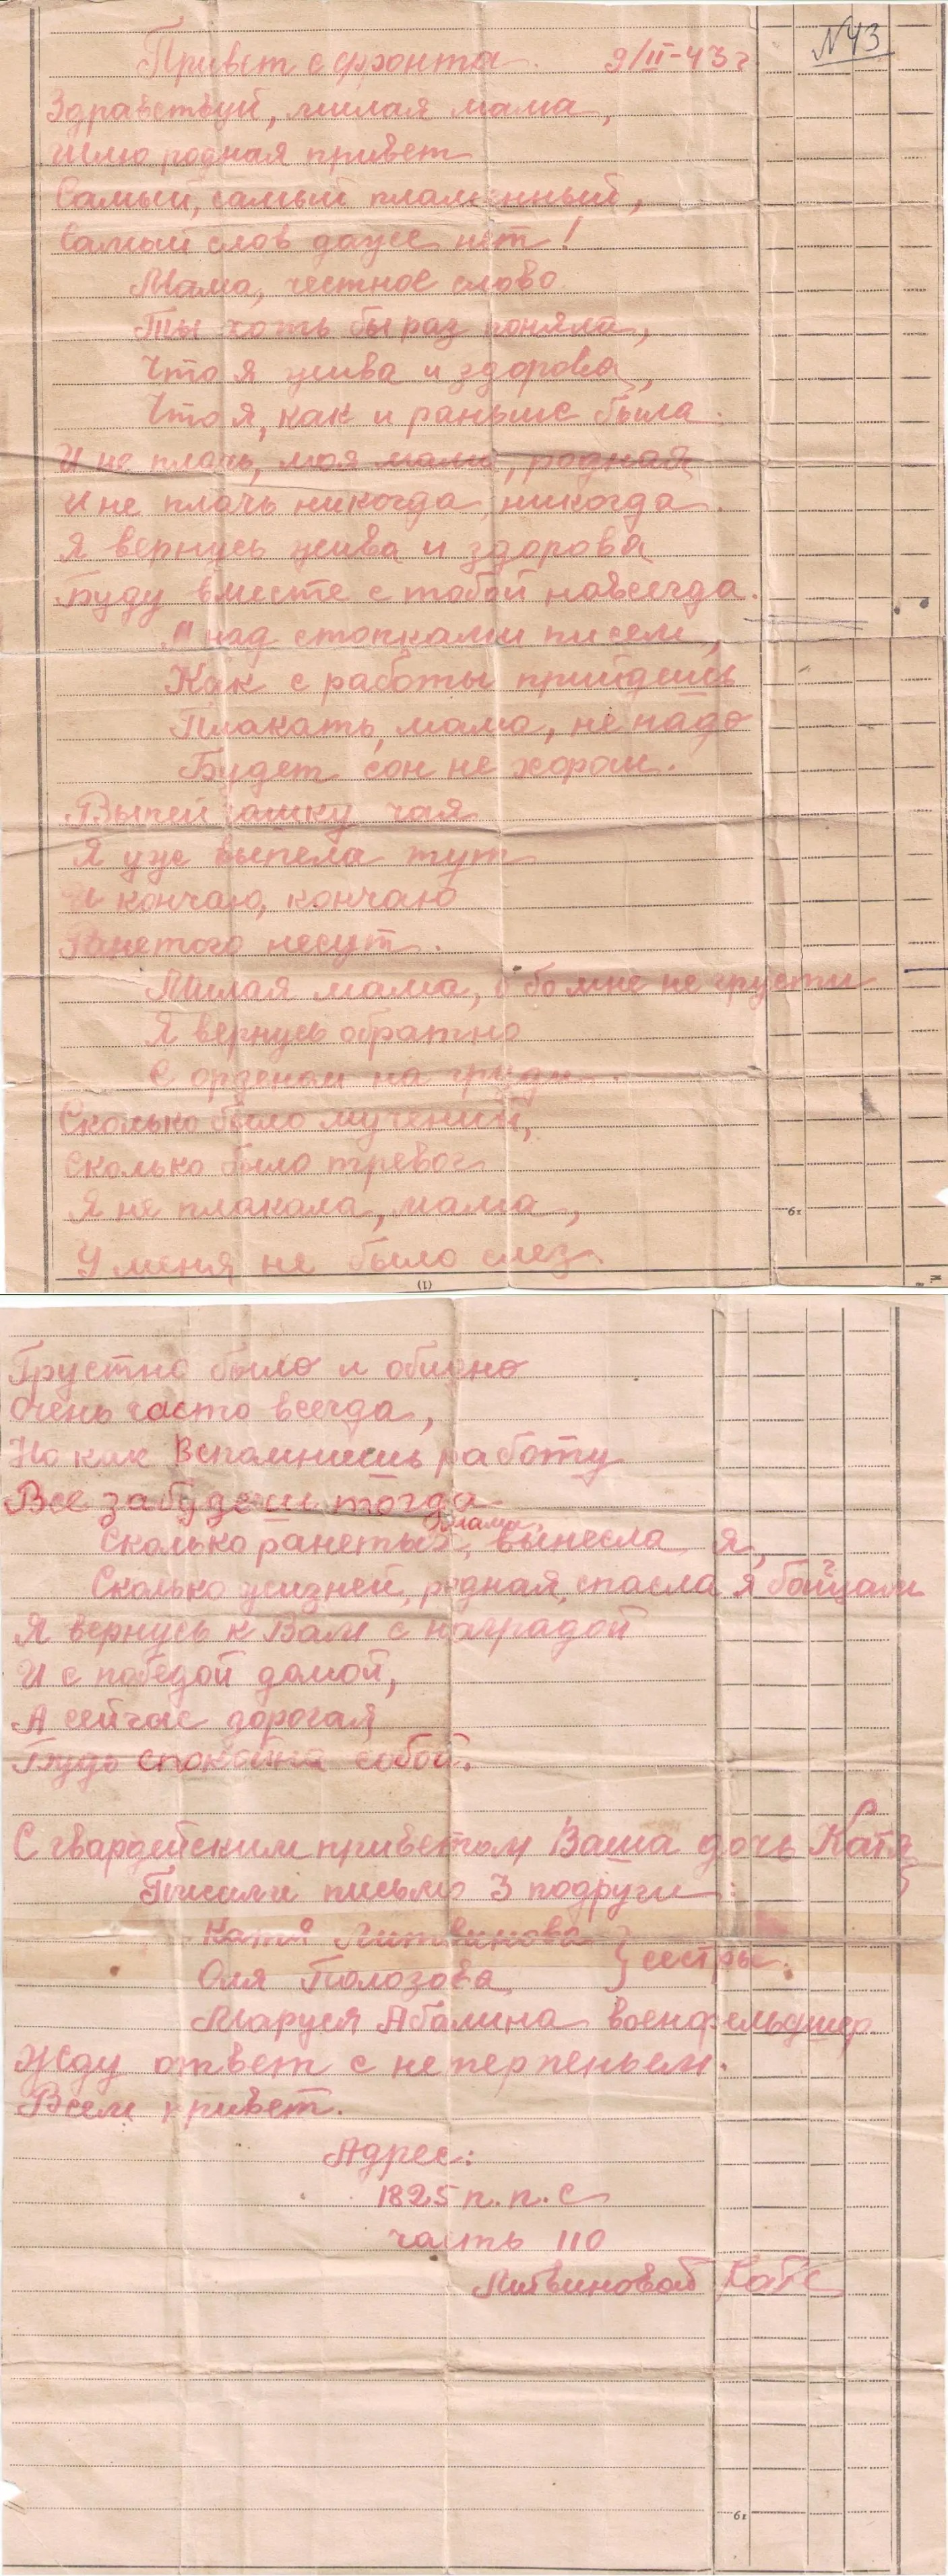 N43
Привет с фронта. 9/II-43г
Здравствуй, милая мама,
Шлю родная привет
Самый, самый пламенный,
Самый слов даже нет!
Мама, честное слово
Ты хоть бы раз поняла,
Что я жива и здорова,
Что я, как и раньше была.
И не плачь, моя мама, родная
И не плачь никогда, никогда.
Я вернусь жива и здорова
Буду вместе с тобой навсегда.
А над стопками писем,
Как с работы прийдешь
Плакать, мама, не надо
Будет сон не хорош.
Выпей чашку чая
Я уже выпела тут
И кончаю, кончаю
Ранетого несут.
Милая мама, обо мне не грусти
Я вернусь обратно
С орденом на груди.
Сколько было мучений,
Сколько было тревог
Я не плакала, мама,
У меня не было слез.
6г
(1)
Грустно было и обидно
Очень часто всегда,
Но как Вспомнишь работу
Все забудешь тогда
мама,
Сколько ранетых, вынесла я,
Сколько жизней, родная, спасла я бойцам
Я вернусь к Вам с наградой
И с победой домой,
А сейчас дорогая
Будь спокойна собой.
С гвардейским приветом Ваша дочь Катя
Писали письмо 3 подруги:
Катя Литвинова
Оля Полозова } сестры.
Маруся Абалина военфельдшер.
Жду ответ с нетерпеньем.
Всем привет.
Адрес:
1825 п.п.с
часть 110
Литвиновой Кате
6г